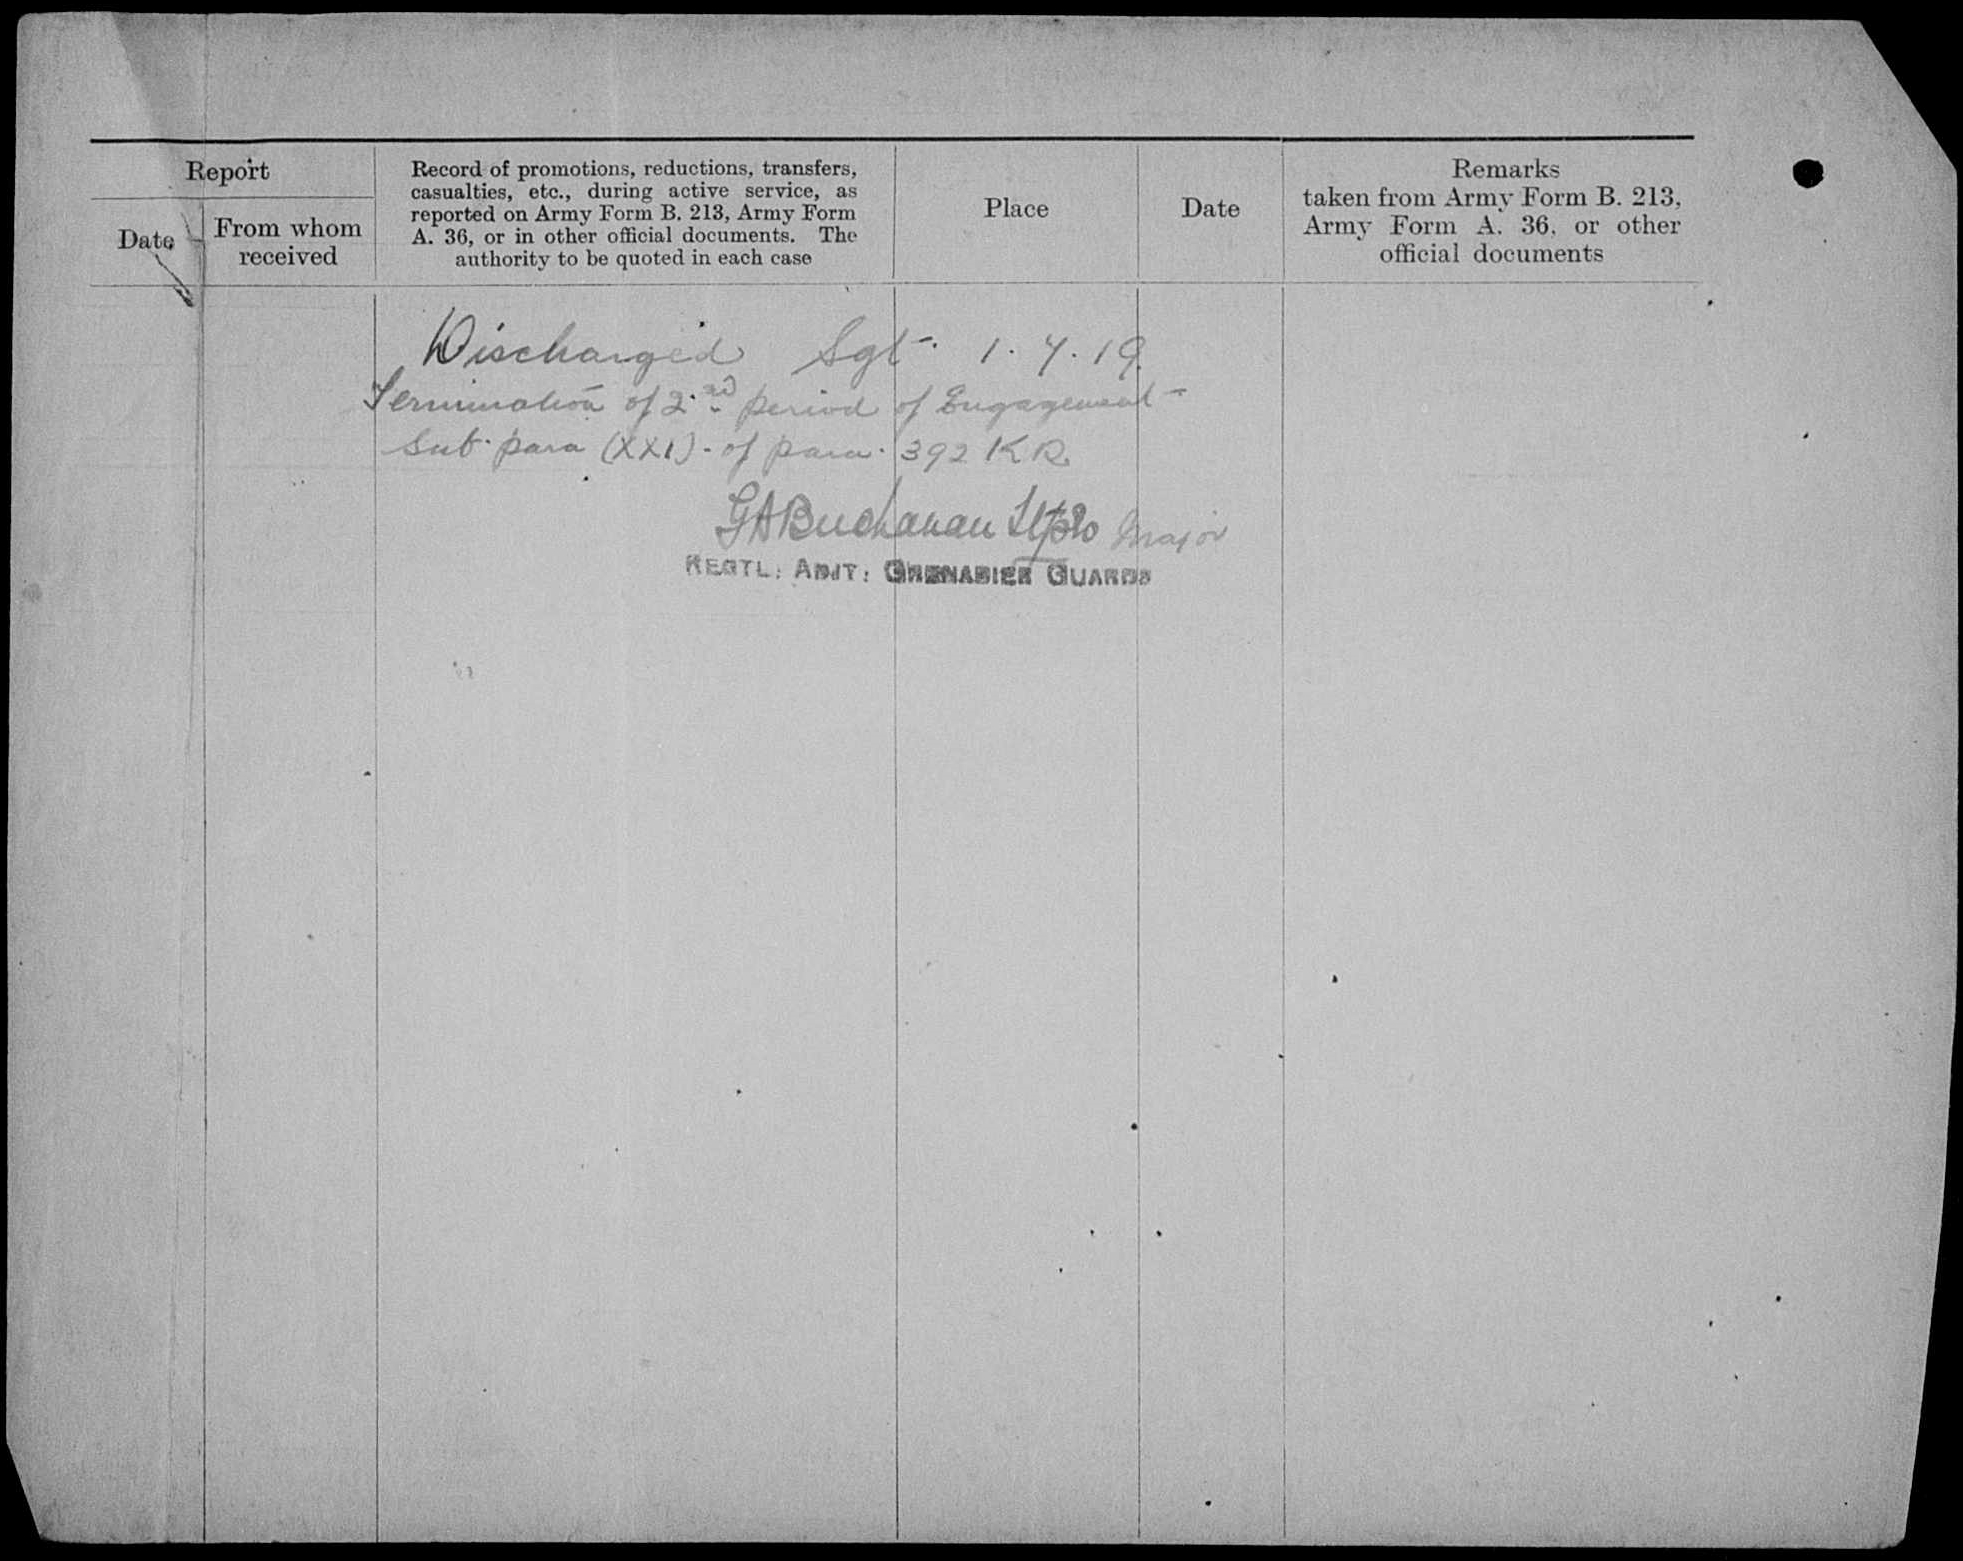 Report
Date
From whom
received
Record of promotions, reductions, transfers,
casualties, etc., during active service, as
reported on Army Form B. 213, Army Form
A. 36, or in other official documents. The
authority to be quoted in each case
Place
Date
Remarks
taken from Army Form B. 213,
Army Form A. 36, or other
official documents
Discharged Sgt. 1.4.19.
Termination of 2nd period of Engagement
Sub. para (XXI). of para. 392 KR
GABuchanan Major
REGTL: ADJT: GRENADIER GUARDS